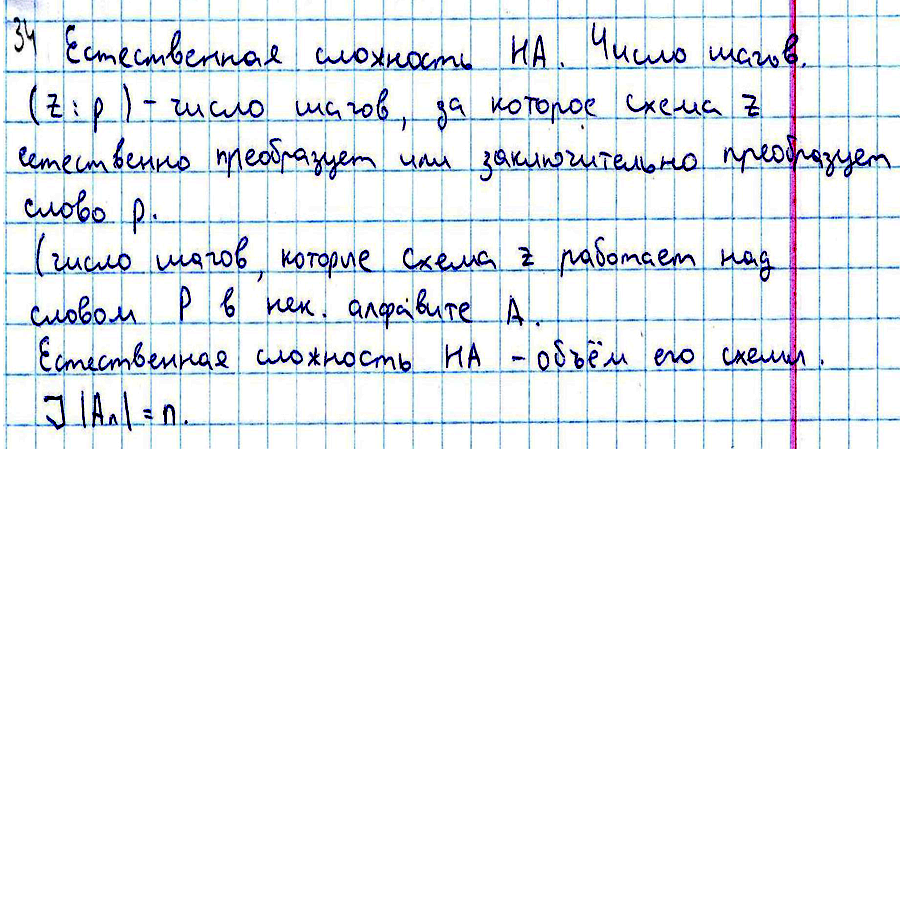 34 Естественная сложность НА. Число шагов.
(z : p) – число шагов, за которое схема z
естественно преобразует или заключительно преобразует
слово p.
(число шагов, которые схема z работает над
словом P в нек. алфавите A.
Естественная сложность НА – объём его схемы.
] |Aₙ| = n.